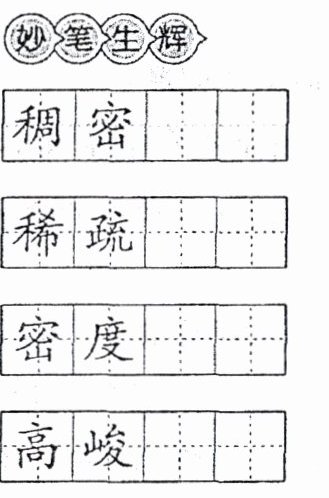 妙笔生辉
稠密
稀疏
密度
高峻